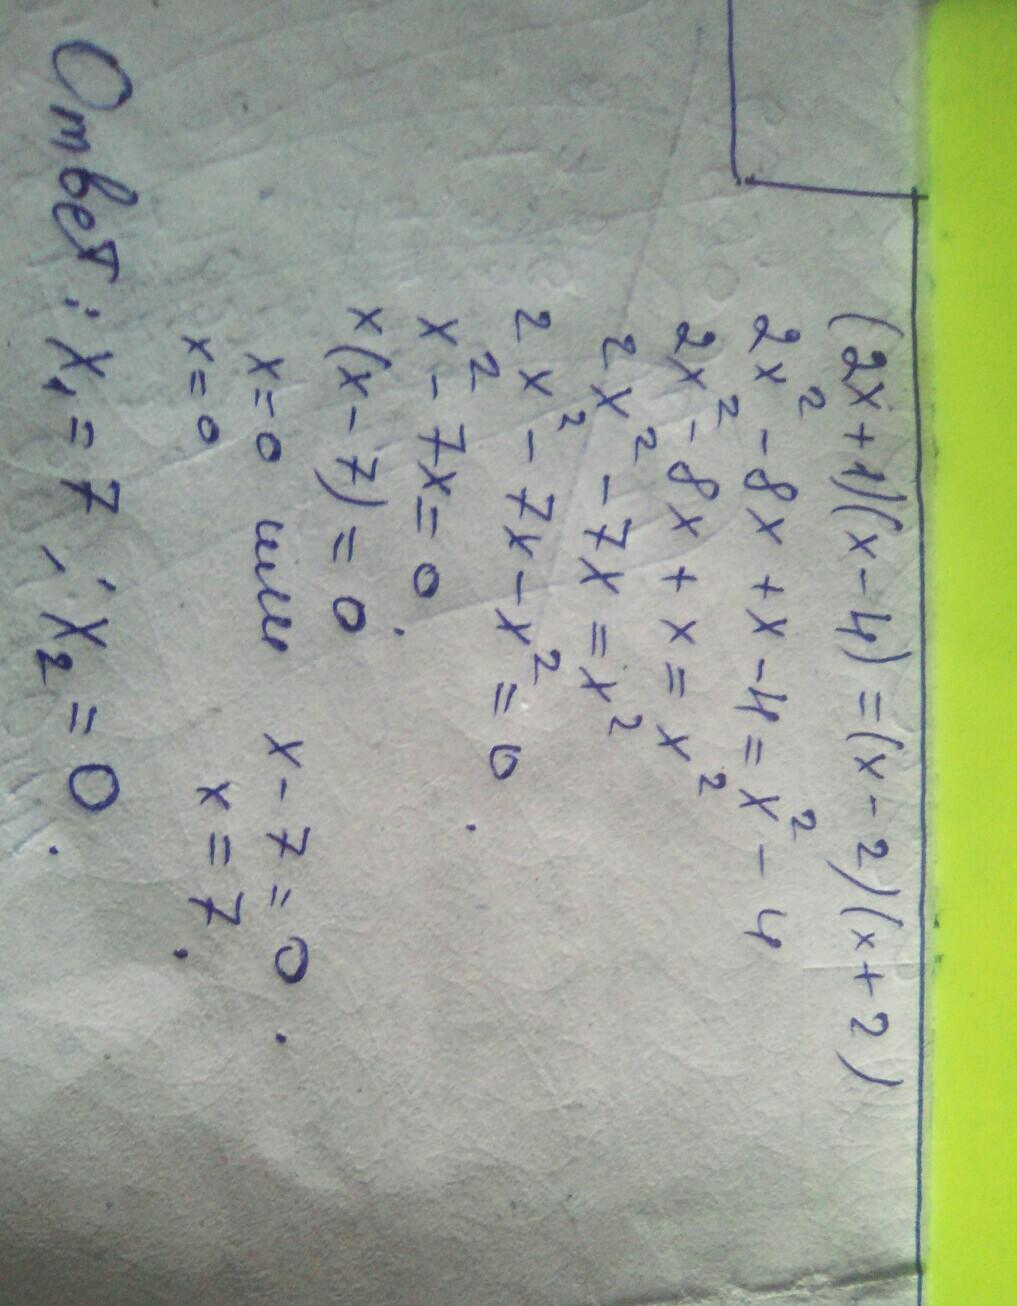 (2x+1)(x-4)=(x-2)(x+2)
2x²-8x+x-4=x²-4
2x²-8x+x=x²
2x²-7x=x²
2x²-7x-x²=0
x²-7x=0.
x(x-7)=0
x=0 или x-7=0.
x=0 x=7.
Ответ: x₁=7; x₂=0.